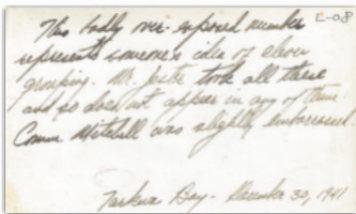 L-08
This badly over-exposed number
represents someones idea of clever
grouping. Mr. took all these
and so does not appear in any of them.
Comm Mitchell was slightly embarrassed.
Bay - December 30, 1941